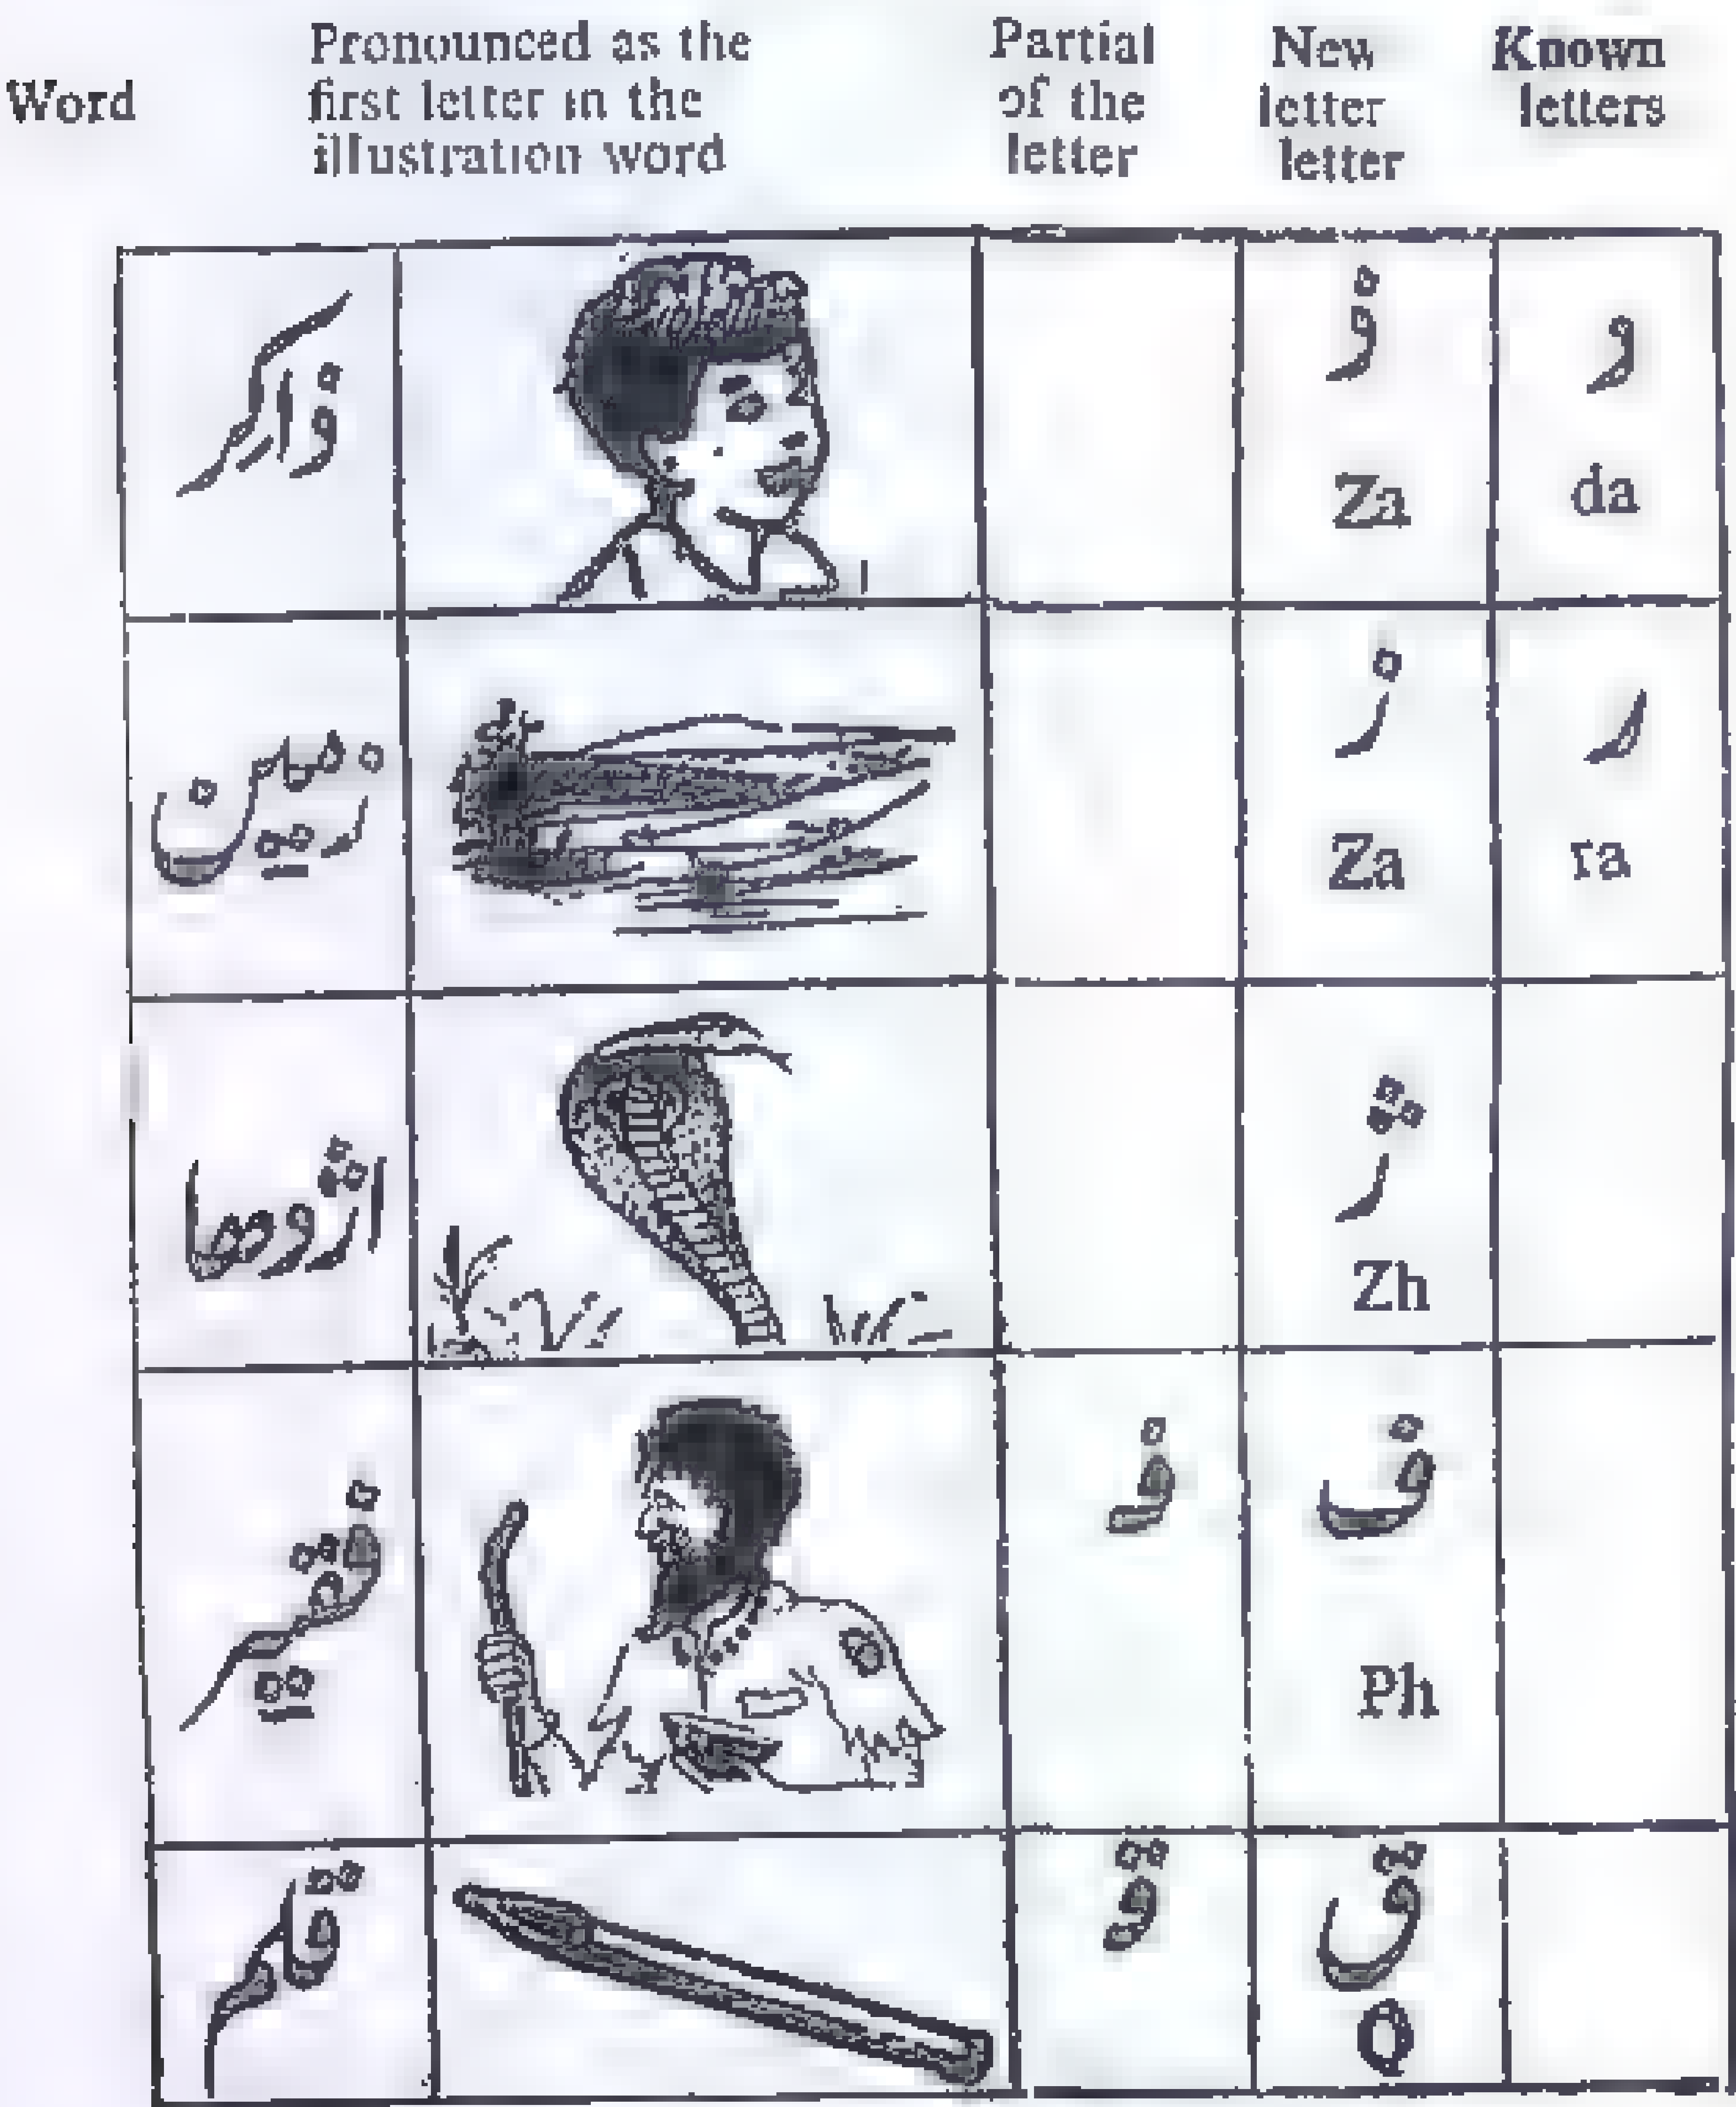 Word
Pronounced as the
first letter in the
illustration word
Partial
of the
letter
New
letter
letter
Known
letters
ذاکر
ذ
Za
د
da
زمین
ز
Za
ر
ra
اژدھا
ژ
Zh
فقیر
فـ
ف
Ph
قلم
قـ
ق
Q